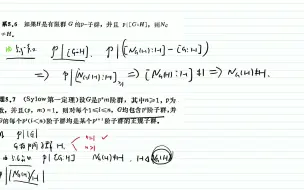 系5.6 如果H是有限群G的p-子群，并且 p|[G:H]，则N_G
≠H.
p | [G:H]. p | ([N_G(H):H] - [G:H])
⇒ p | [N_G(H):H] ⇒ [N_G(H):H] ≠1 ⇒ N_G(H)≠H.
5.7 (Sylow第一定理) 设G是pⁿm阶群，其中n≥1，p为
数，并且(p, m)=1，则对每个1≤i≤n，G均包含pⁱ阶子群，并
G的每个pⁱ(i<n)阶子群均是某个pⁱ⁺¹阶子群的正规子群.
p | |G|
G 子群 H.
p | [G:H] N_G(H) ≠H. H◁ N_G(H)
p | |N_G(H)/H|